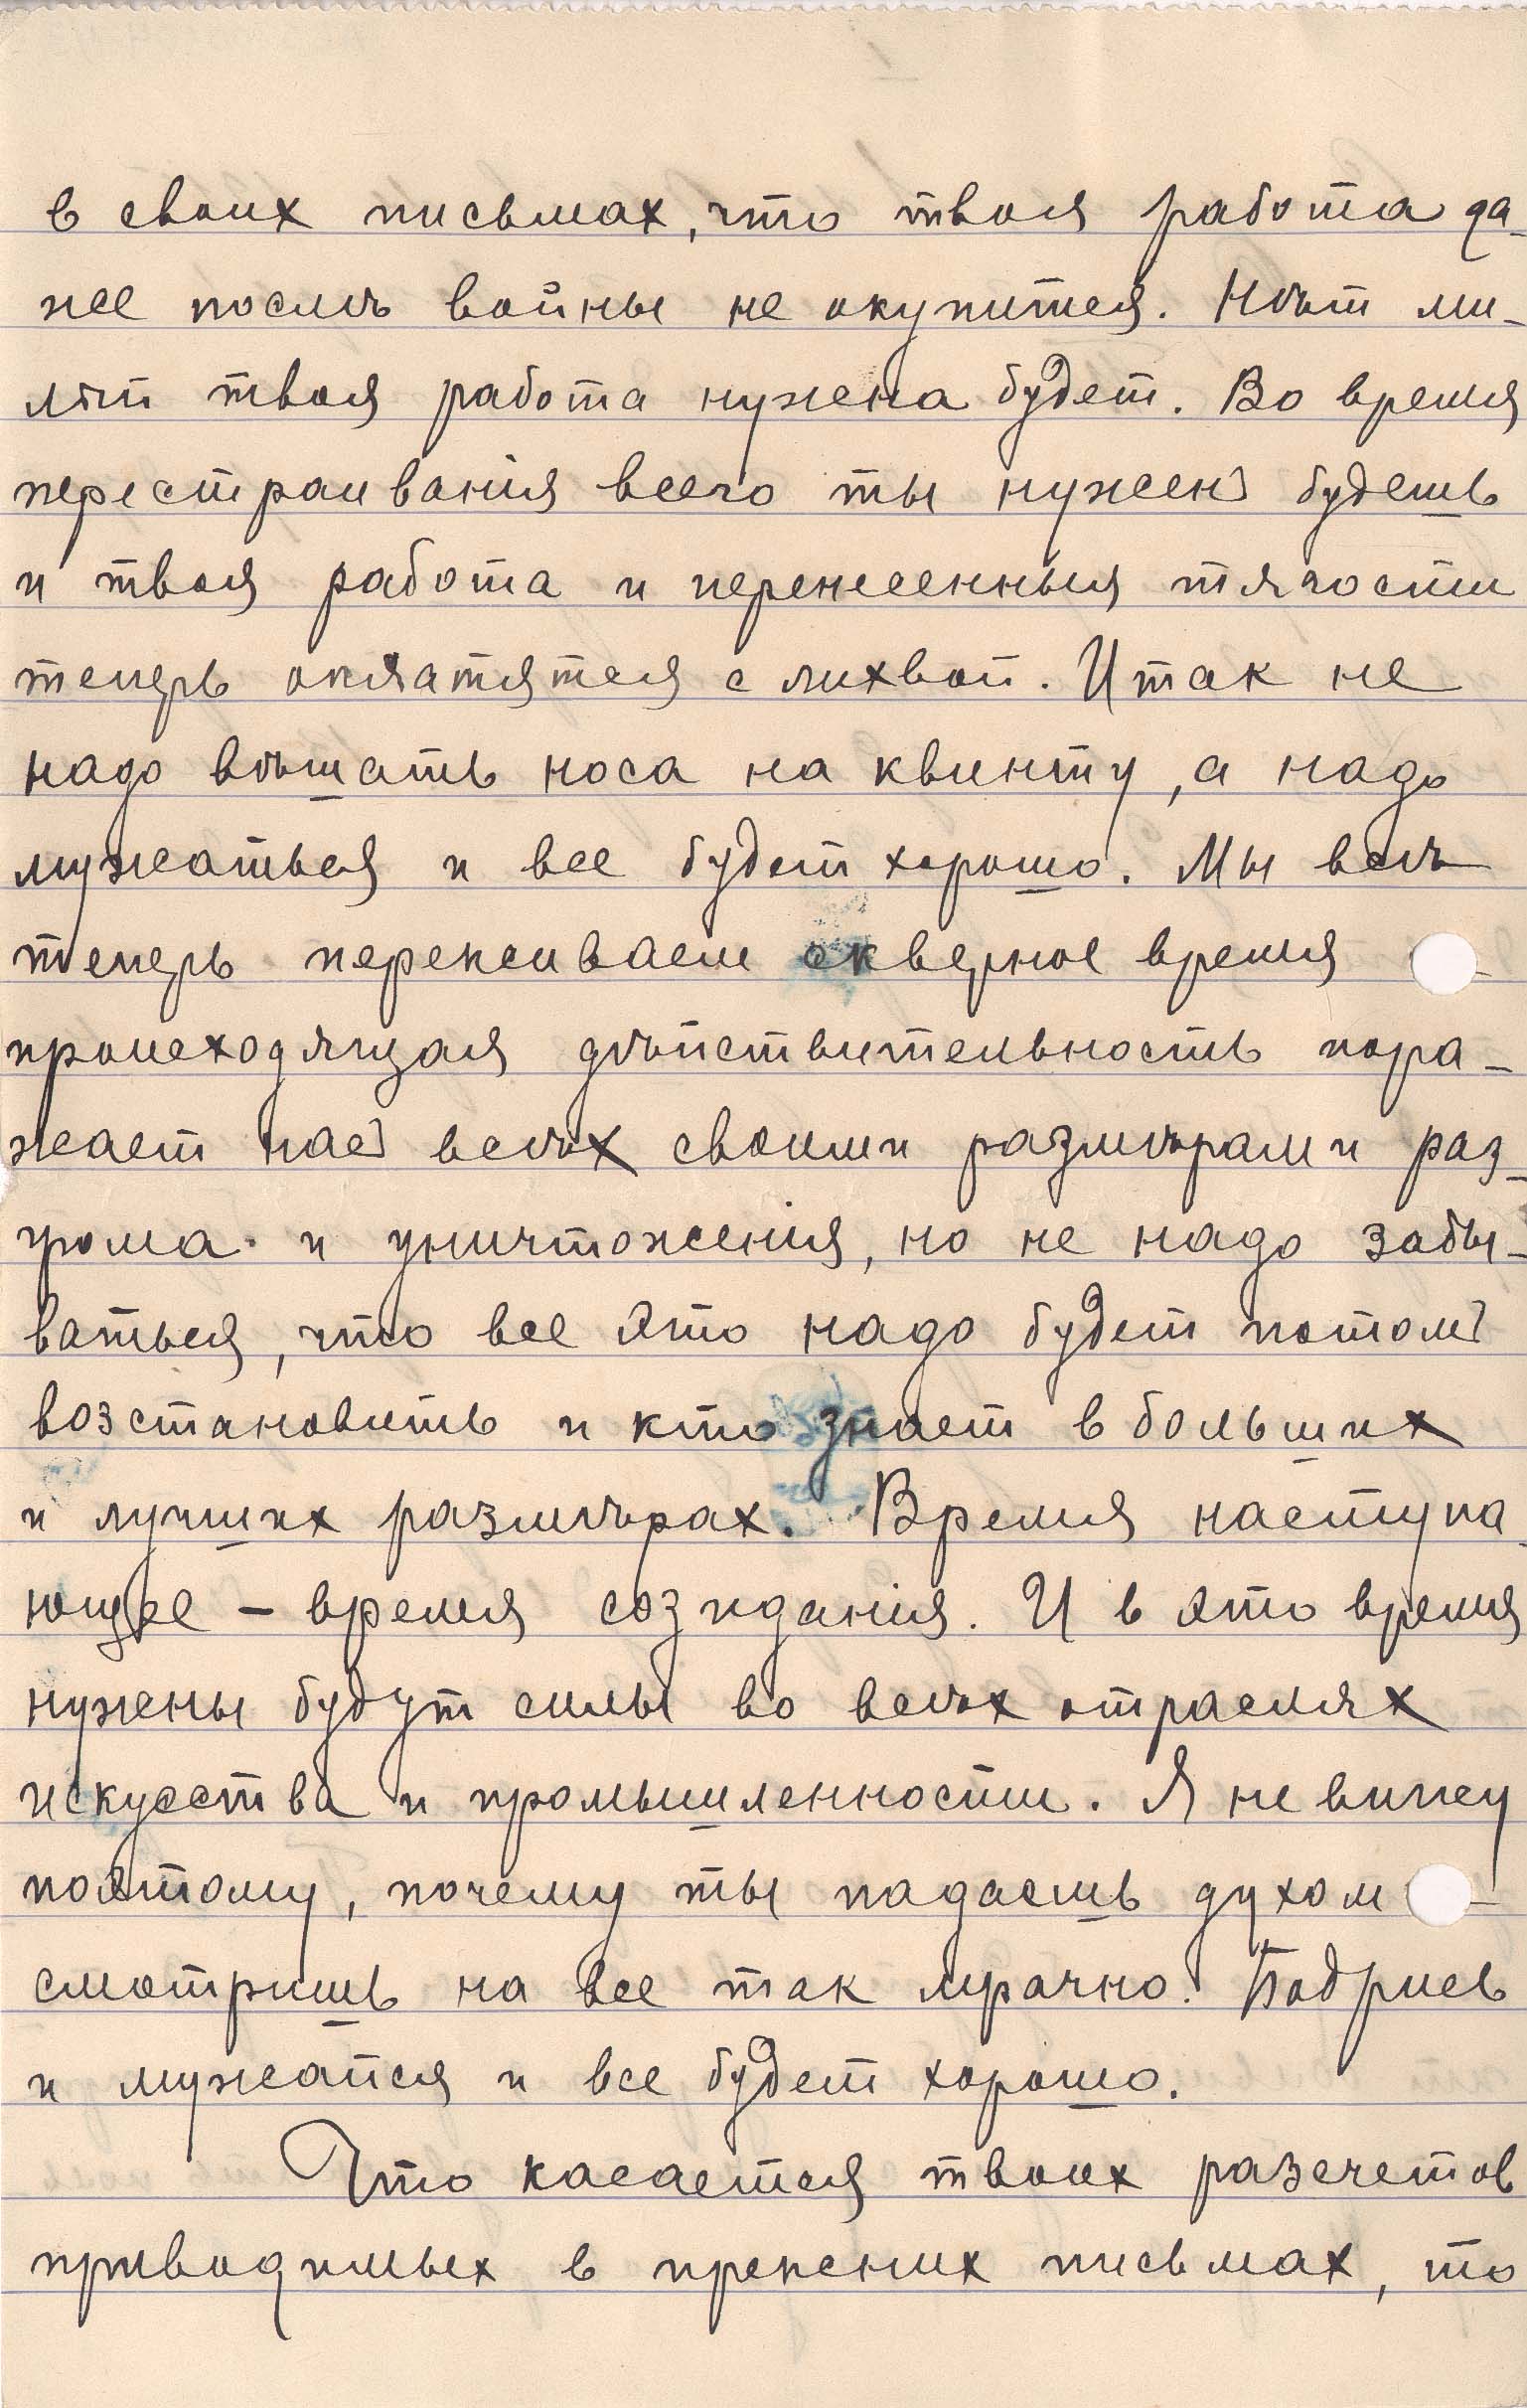 в своих письмах, что твоя работа да-
же послѣ войны не окупится. Нѣт ми-
лый твоя работа нужна будет. Во время
перестраиванія всего ты нужен будешь
и твоя работа и перенесенныя тягости
теперь окпатятся с лихвой. Итак не
надо вѣшать носа на квинту, а надо
мужаться и все будет хорошо. Мы всѣ
теперь переживаем скверное время
происходящая дѣйствительность пора-
жает нас всѣх своими размѣрами раз-
грома и уничтоженія, но не надо забы-
ваться, что все это надо будет потом
возстановить и кто знает в больших
и лучших размѣрах. Время наступа-
ющее – время созиданія. И в это время
нужны будут силы во всѣх отраслях
искусства и промышленности. Я не вижу
поэтому, почему ты падаешь духом
смотришь на все так мрачно. Бодрись
и мужайся и все будет хорошо.
Что касается твоих разсчетов
приводимых в прежних письмах, то